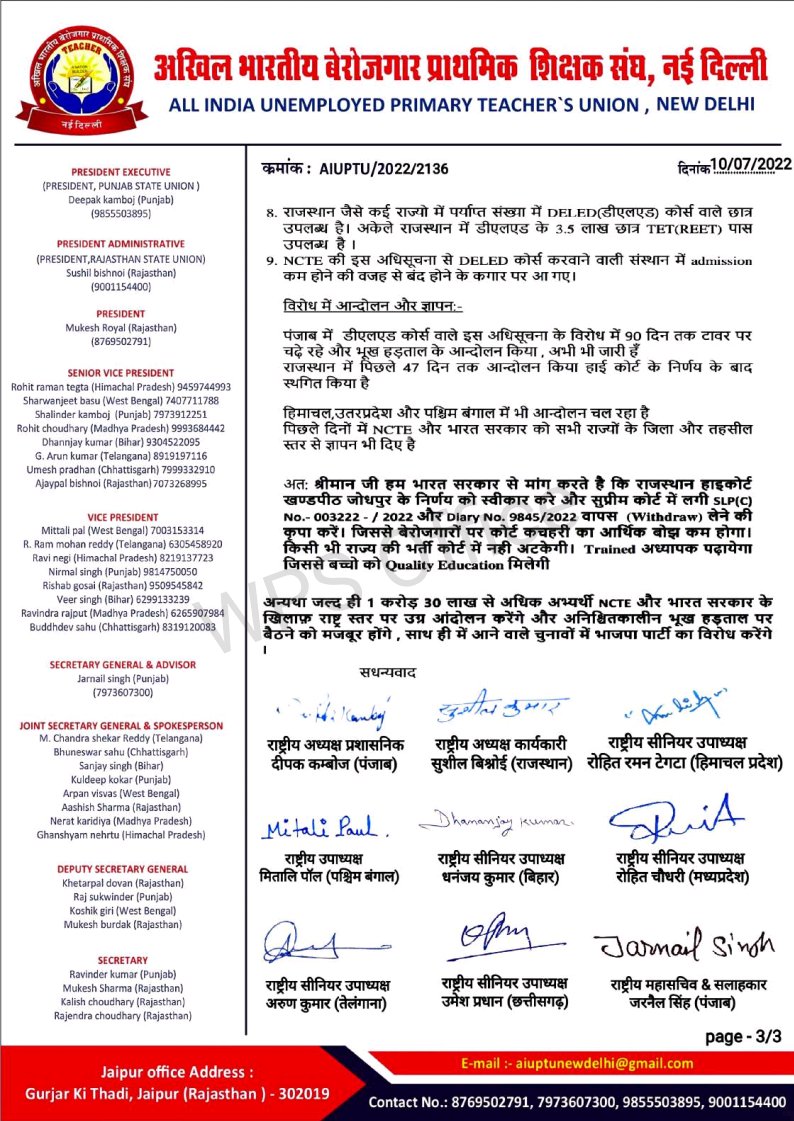 अखिल भारतीय बेरोजगार प्राथमिक शिक्षक संघ
TEACHER
नई दिल्ली
अखिल भारतीय बेरोजगार प्राथमिक शिक्षक संघ, नई दिल्ली
ALL INDIA UNEMPLOYED PRIMARY TEACHER`S UNION , NEW DELHI
PRESIDENT EXECUTIVE
(PRESIDENT, PUNJAB STATE UNION )
Deepak kamboj (Punjab)
(9855503895)
PRESIDENT ADMINISTRATIVE
(PRESIDENT,RAJASTHAN STATE UNION)
Sushil bishnoi (Rajasthan)
(9001154400)
PRESIDENT
Mukesh Royal (Rajasthan)
(8769502791)
SENIOR VICE PRESIDENT
Rohit raman tegta (Himachal Pradesh) 9459744993
Sharwanjeet basu (West Bengal) 7407711788
Shalinder kamboj (Punjab) 7973912251
Rohit choudhary (Madhya Pradesh) 9993684442
Dhannjay kumar (Bihar) 9304522095
G. Arun kumar (Telangana) 8919197116
Umesh pradhan (Chhattisgarh) 7999332910
Ajaypal bishnoi (Rajasthan) 7073268995
VICE PRESIDENT
Mittali pal (West Bengal) 7003153314
R. Ram mohan reddy (Telangana) 6305458920
Ravi negi (Himachal Pradesh) 8219137723
Nirmal singh (Punjab) 9814750050
Rishab gosai (Rajasthan) 9509545842
Veer singh (Bihar) 6299133239
Ravindra rajput (Madhya Pradesh) 6265907984
Buddhdev sahu (Chhattisgarh) 8319120083
SECRETARY GENERAL & ADVISOR
Jarnail singh (Punjab)
(7973607300)
JOINT SECRETARY GENERAL & SPOKESPERSON
M. Chandra shekar Reddy (Telangana)
Bhuneswar sahu (Chhattisgarh)
Sanjay singh (Bihar)
Kuldeep kokar (Punjab)
Arpan visvas (West Bengal)
Aashish Sharma (Rajasthan)
Nerat karidiya (Madhya Pradesh)
Ghanshyam nehrtu (Himachal Pradesh)
DEPUTY SECRETARY GENERAL
Khetarpal dovan (Rajasthan)
Raj sukwinder (Punjab)
Koshik giri (West Bengal)
Mukesh burdak (Rajasthan)
SECRETARY
Ravinder kumar (Punjab)
Mukesh Sharma (Rajasthan)
Kalish choudhary (Rajasthan)
Rajendra choudhary (Rajasthan)
क्रमांक : AIUPTU/2022/2136 दिनांक 10/07/2022
8. राजस्थान जैसे कई राज्यो में पर्याप्त संख्या में DELED(डीएलएड) कोर्स वाले छात्र
उपलब्ध है। अकेले राजस्थान में डीएलएड के 3.5 लाख छात्र TET(REET) पास
उपलब्ध है ।
9. NCTE की इस अधिसूचना से DELED कोर्स करवाने वाली संस्थान में admission
कम होने की वजह से बंद होने के कगार पर आ गए।
विरोध में आन्दोलन और ज्ञापन:-
पंजाब में डीएलएड कोर्स वाले इस अधिसूचना के विरोध में 90 दिन तक टावर पर
चढ़े रहे और भूख हड़ताल के आन्दोलन किया , अभी भी जारी हैं
राजस्थान में पिछले 47 दिन तक आन्दोलन किया हाई कोर्ट के निर्णय के बाद
स्थगित किया है
हिमाचल,उतरप्रदेश और पश्चिम बंगाल में भी आन्दोलन चल रहा है
पिछले दिनों में NCTE और भारत सरकार को सभी राज्यों के जिला और तहसील
स्तर से ज्ञापन भी दिए है
अत: श्रीमान जी हम भारत सरकार से मांग करते है कि राजस्थान हाइकोर्ट
खण्डपीठ जोधपुर के निर्णय को स्वीकार करे और सुप्रीम कोर्ट में लगी SLP(C)
No.- 003222 - / 2022 और Diary No. 9845/2022 वापस (Withdraw) लेने की
कृपा करें। जिससे बेरोजगारों पर कोर्ट कचहरी का आर्थिक बोझ कम होगा।
किसी भी राज्य की भर्ती कोर्ट में नही अटकेगी। Trained अध्यापक पढ़ायेगा
जिससे बच्चो को Quality Education मिलेगी
अन्यथा जल्द ही 1 करोड़ 30 लाख से अधिक अभ्यर्थी NCTE और भारत सरकार के
खिलाफ़ राष्ट्र स्तर पर उग्र आंदोलन करेंगे और अनिश्चितकालीन भूख हड़ताल पर
बैठने को मजबूर होंगे , साथ ही में आने वाले चुनावों में भाजपा पार्टी का विरोध करेंगे
।
WPS Office
सधन्यवाद
सुशील कुमार
राष्ट्रीय अध्यक्ष प्रशासनिक
दीपक कम्बोज (पंजाब)
राष्ट्रीय अध्यक्ष कार्यकारी
सुशील बिश्नोई (राजस्थान)
राष्ट्रीय सीनियर उपाध्यक्ष
रोहित रमन टेगटा (हिमाचल प्रदेश)
Mitali Paul.
Dhananjay Kumar.
राष्ट्रीय उपाध्यक्ष
मितालि पॉल (पश्चिम बंगाल)
राष्ट्रीय सीनियर उपाध्यक्ष
धनंजय कुमार (बिहार)
राष्ट्रीय सीनियर उपाध्यक्ष
रोहित चौधरी (मध्यप्रदेश)
Jarnail Singh
राष्ट्रीय सीनियर उपाध्यक्ष
अरुण कुमार (तेलंगाना)
राष्ट्रीय सीनियर उपाध्यक्ष
उमेश प्रधान (छत्तीसगढ़)
राष्ट्रीय महासचिव & सलाहकार
जरनैल सिंह (पंजाब)
page - 3/3
Jaipur office Address :
Gurjar Ki Thadi, Jaipur (Rajasthan ) - 302019
E-mail :- aiuptunewdelhi@gmail.com
Contact No.: 8769502791, 7973607300, 9855503895, 9001154400